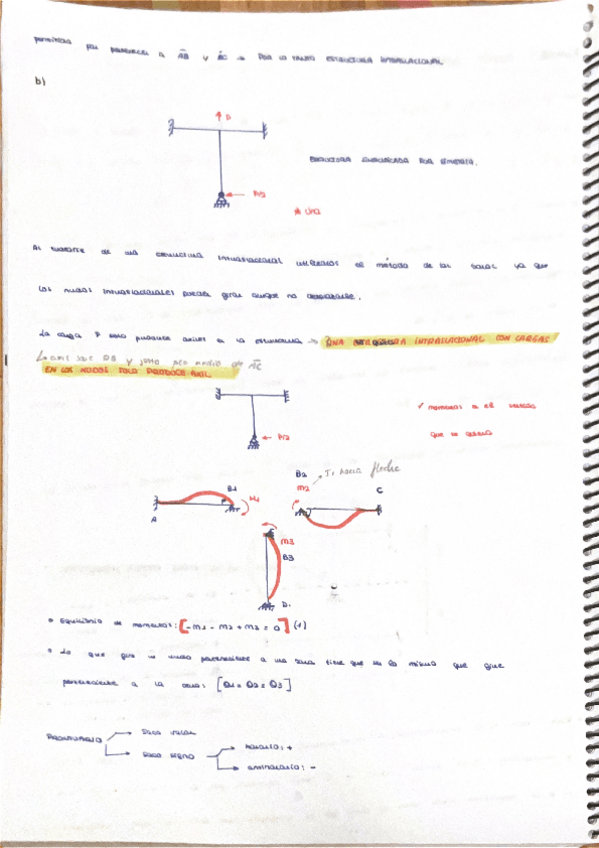 permitidos por pertenecer a AB y BC → POR LO TANTO ESTRUCTURA INTRASLACIONAL
b)
D
ESTRUCTURA SIMPLIFICADA POR SIMETRÍA.
P/2
Al tratarse de una estructura intraslacional utilizamos el método de las barras ya que
los nudos intraslacionales pueden girar aunque no desplazarse.
La carga P solo produce axiles en la estructura → UNA ESTRUCTURA INTRASLACIONAL CON CARGAS
EN LOS NODOS SOLO PRODUCE AXIL
✓ momentos en el sentido
P/2
que se quiera
B2
flecha
B1
M1
M2
C
A
M3
B3
D
• Equilibrio de momentos: [-M1 - M2 + M3 = 0] (1)
• Lo que gire un nudo perteneciente a una barra tiene que ser lo mismo que gire
perteneciente a la otra: [θ1 = θ2 = θ3]
saco valor
saco signo
horario: +
antihorario: -